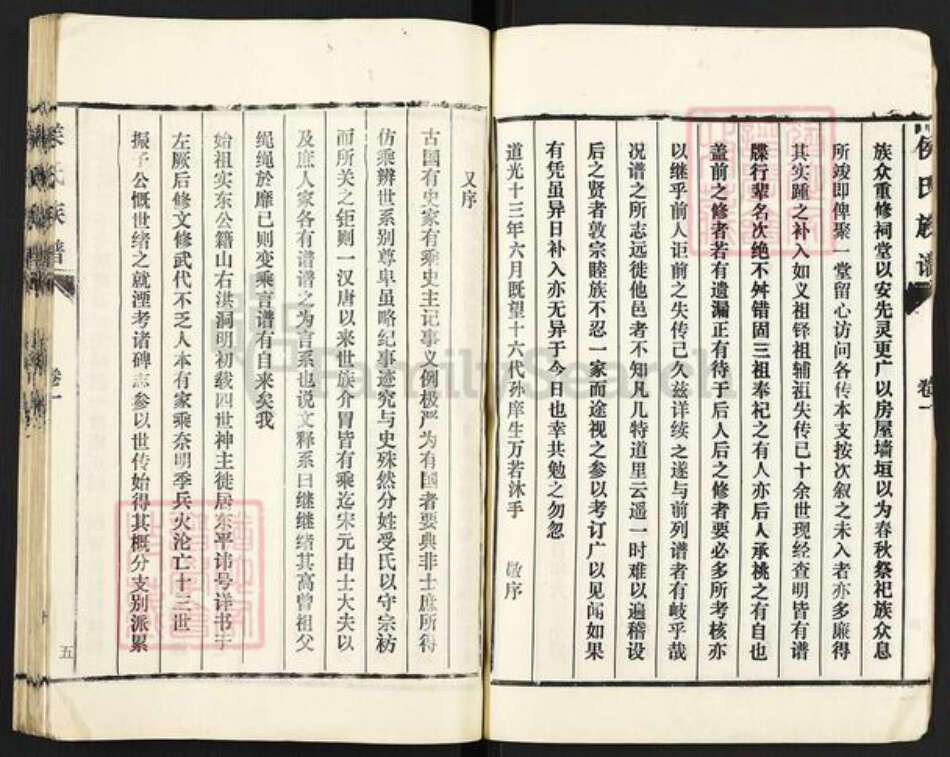 侯氏族谱
卷一
族众重修祠堂以安先灵更广以房屋墙垣以为春秋祭祀族众息
所竣即俾聚一堂留心访问各传本支按次叙之未入者亦多廉得
其实踵之补入如义祖铎祖辅祖失传已十余世现经查明皆有谱
牒行辈名次绝不舛错固三祖奉祀之有人亦后人承桃之有自也
盖前之修者若有遗漏正有待于后人后之修者要必多所考核亦
以继乎前人讵前之失传已久兹详续之遂与前列谱者有岐乎哉
况谱之所志远徙他邑者不知凡几特道里云遥一时难以遍稽设
后之贤者敦宗睦族不忍一家而途视之参以考订广以见闻如果
有凭虽异日补入亦无异于今日也幸共勉之勿忽
道光十三年六月既望十六代孙庠生万若沐手 敬序
又序
古国有史家有乘史主记事义例极严为有国者要典非士庶所得
仿乘辨世系别尊卑虽略纪事迹究与史殊然分姓受氏以守宗祊
而所关之钜则一汉唐以来世族介胄皆有乘迄宋元由士大夫以
及庶人家各有谱谱之为言系也说文释系曰继继绪其高曾祖父
绳绳於靡已则变乘言谱有自来矣我
始祖实东公籍山右洪洞明初载四世神主徙居东平讳号详书于
左厥后修文修武代不乏人本有家乘奈明季兵火沦亡十三世
振子公慨世绪之就湮考诸碑志参以世传始得其概分支别派累
五
氏族谱
卷一
FamilySearch